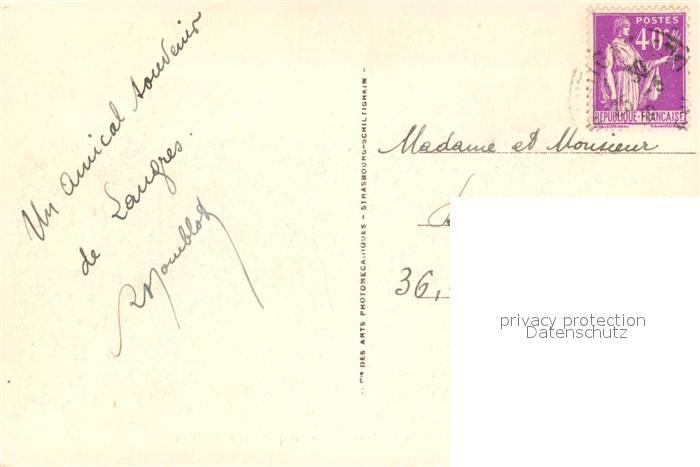 Un amical souvenir
de Langres.
POSTES
40c
REPUBLIQUE-FRANÇAISE
Cie DES ARTS PHOTOMECANIQUES - STRASBOURG-SCHILTIGHEIM -
Madame et Monsieur
36,
privacy protection
Datenschutz